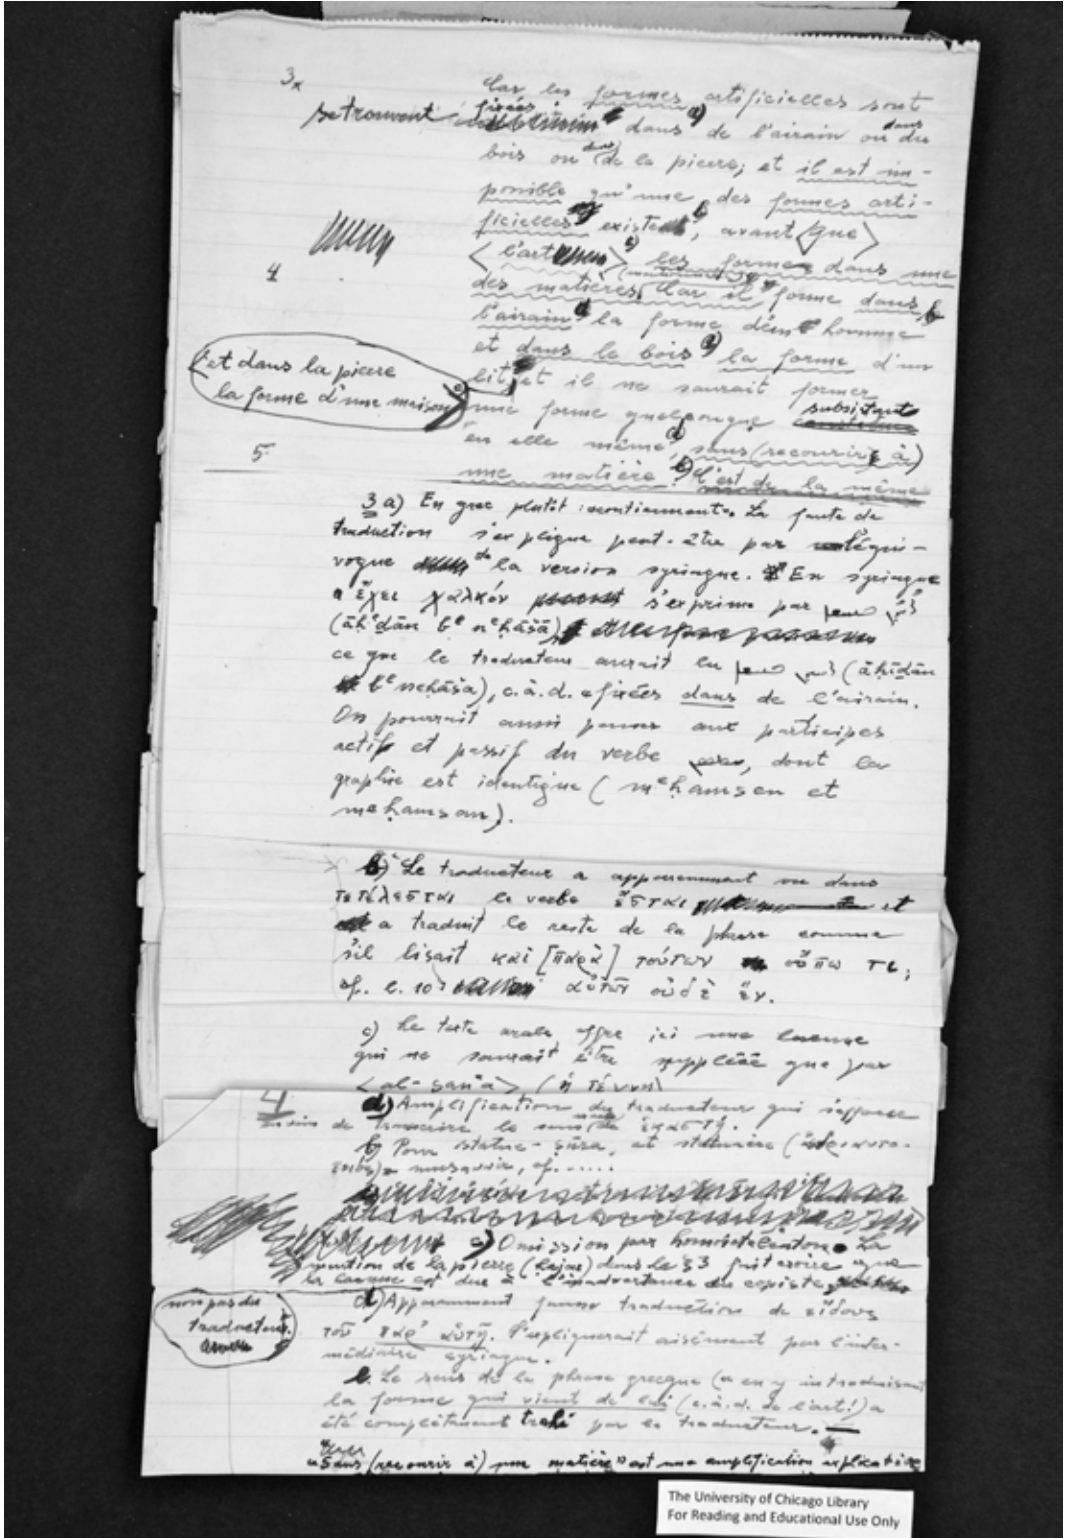 3x
Car les formes artificielles sont
se trouvent fixées a) dans de l'airain ou dans du
bois ou dans de la pierre; et il est im-
possible qu'une des formes arti-
ficielles existe b), avant <que>
<l'art> c) les forme dans une
4
des matières. Car il forme dans
l'airain la forme d'un homme
et dans le bois la forme d'un
lit, et il ne saurait former
et dans la pierre
la forme d'une maison
une forme quelconque subsistant
en elle même, sans (recourir à)
5.
une matière. C'est de la même
3 a) En grec plutôt: contiennent. La faute de
traduction s'explique peut-être par l'équi-
voque de la version syriaque. En syriaque
ἔχει χαλκόν s'exprime par
(āḥedān be neḥāšā),
ce que le traducteur aurait lu (āḥīdān
be neḥāšā), c.à.d. «fixées dans de l'airain.
On pourrait aussi penser aux participes
actif et passif du verbe , dont la
graphie est identique (meḥamsen et
meḥamsan).
b) Le traducteur a apparemment vu dans
τετέλεσται le verbe ἔσται et
a traduit le reste de la phrase comme
s'il lisait καὶ [παρὰ] τούτων οὔπω τι;
cf. l. 10 αὐτῶν οὐδὲ ἕν.
c) Le texte arabe offre ici une lacune
qui ne saurait être suppléée que par
<al-ṣanʿa> (ἡ τέχνη)
4
a) Amplification du traducteur qui s'efforce
de transcrire le sens de ἑκάστῃ.
b) Pour statue = ṣūra, et statuaire
= muṣawwir, cf......
c) Omission par homoiotéleuton. La
mention de la pierre (ḥajar) dans le §3 fait croire que
la lacune est due à l'inadvertance du copiste
non pas du
traducteur
d) Apparemment fausse traduction de εἴδους
τοῦ παρ' αὐτῇ. S'expliquerait aisément par l'inter-
médiaire syriaque.
e. Le sens de la phrase grecque (« en y introduisant
la forme qui vient de lui (c.à.d. de l'art!) a
été complètement trahi par le traducteur.
«Sans (recourir à) une matière» est une amplification explicative
The University of Chicago Library
For Reading and Educational Use Only